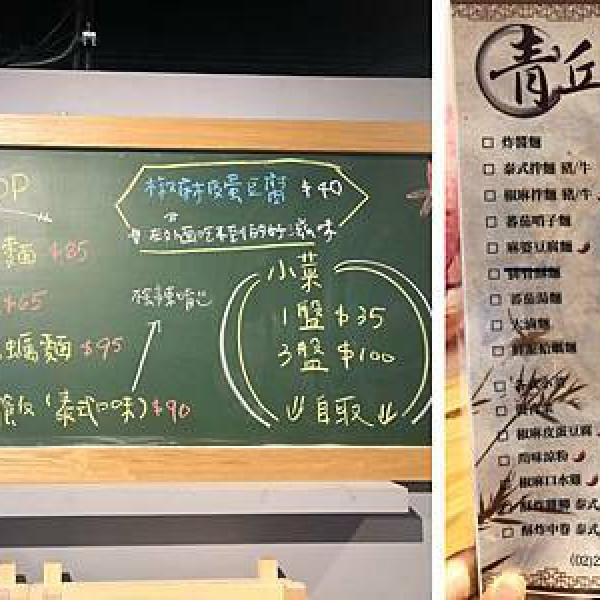 OP
椒麻皮蛋豆腐 $40
在外面吃不到的好滋味
麵 $85
$65
蠣麵 $95
飯(泰式口味) $90
小菜
1盤 $35
3盤 $100
自取
青丘
□ 炸醬麵
□ 泰式拌麵 豬/牛
□ 椒麻拌麵 豬/牛
□ 蕃茄哨子麵
□ 麻婆豆腐麵
□ 蕃茄湯麵
□ 大滷麵
□ 椒麻皮蛋豆腐
□ 川味涼粉
□ 椒麻口水雞
□ 酥炸雞柳 泰式
□ 酥炸中卷 泰式
(02)2